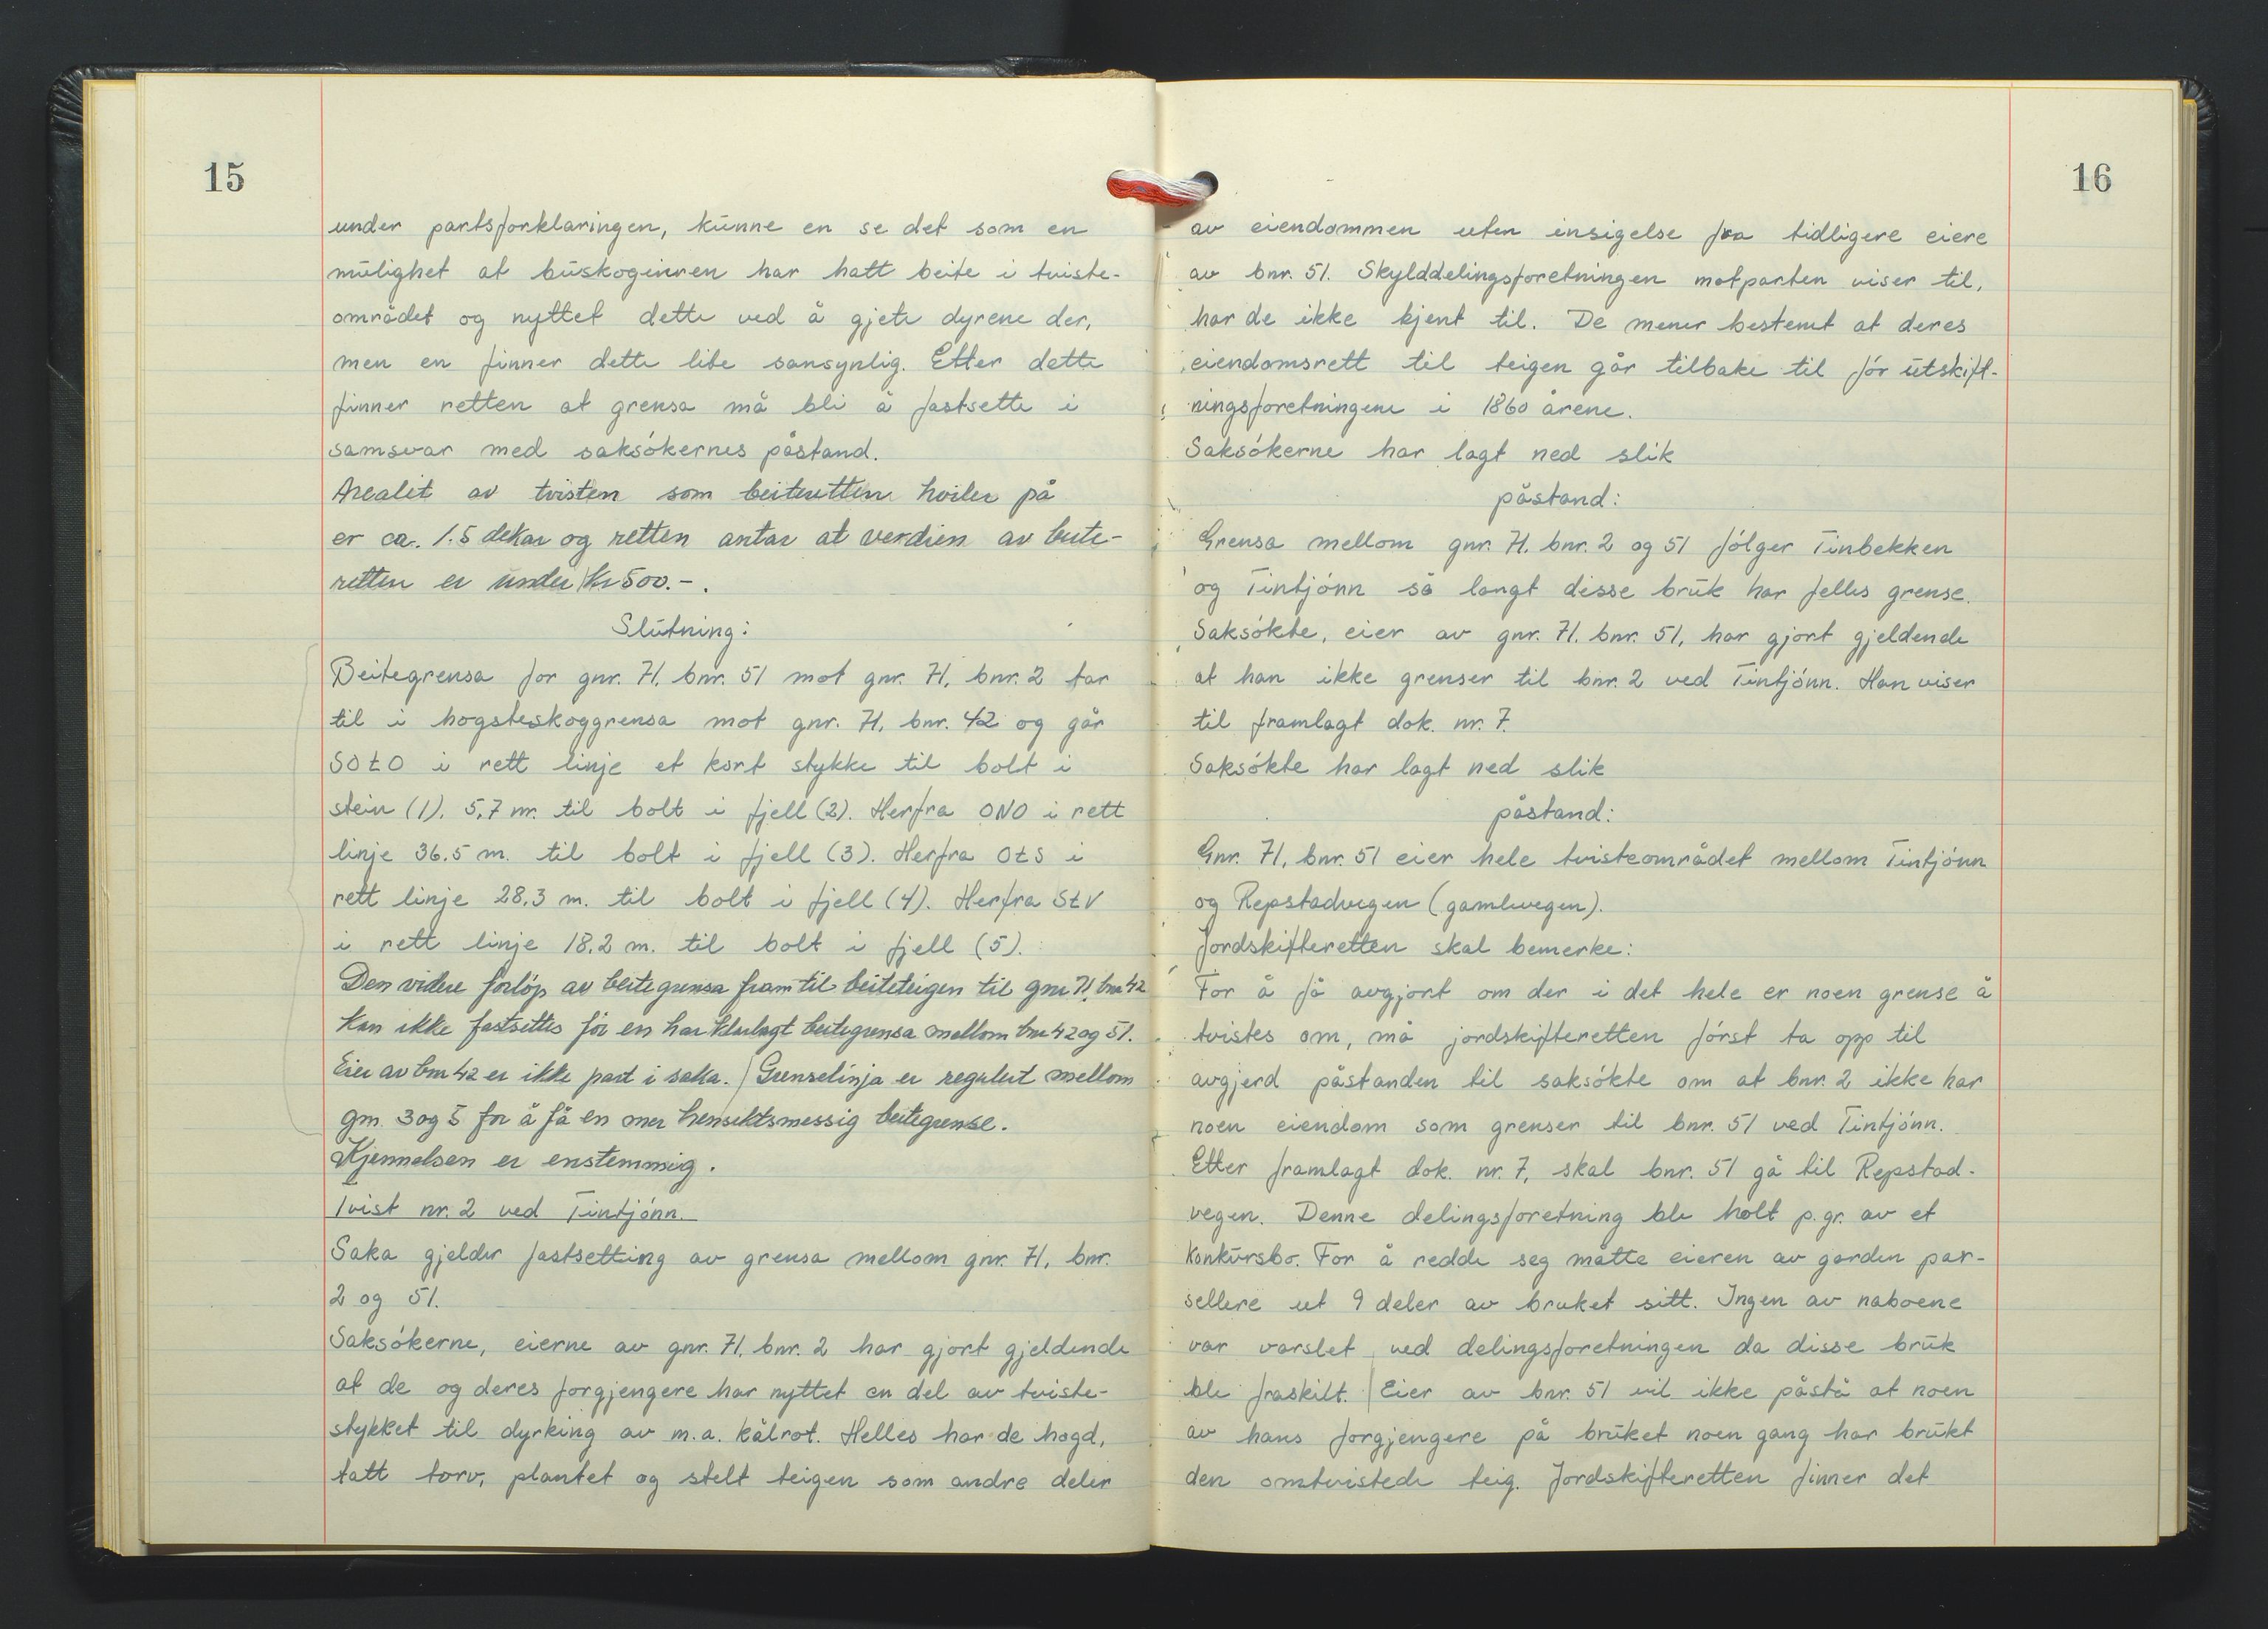 15
under partsforklaringen, kunne en se det som en
mulighet at buskogeieren har hatt beite i tviste-
området og nyttet dette ved å gjete dyrene der,
men en finner dette lite sansynlig. Etter dette
finner retten at grensa må bli å fastsette i
samsvar med saksøkernes påstand.
Arealet av tvisten som beiteretten hviler på
er ca. 1.5 dekar og retten antar at verdien av beite-
retten er under kr 500.-.
Slutning:
Beitegrensa for gnr. 71, bnr. 51 mot gnr. 71, bnr. 2 tar
til i hogsteskoggrensa mot gnr. 71, bnr. 42 og går
SOtO i rett linje et kort stykke til bolt i
stein (1), 5,7 m. til bolt i fjell (2). Herfra ONO i rett
linje 36.5 m. til bolt i fjell (3). Herfra OtS i
rett linje 28,3 m. til bolt i fjell (4). Herfra StV
i rett linje 18,2 m. til bolt i fjell (5).
Den videre forløp av beitegrensa fram til beiteteigen til gnr 71, bnr 42
kan ikke fastsettes før en har klarlagt beitegrensa mellom bnr 42 og 51.
Eier av bnr 42 er ikke part i saka. / Grenselinja er regulert mellom
gm. 3 og 5 for å få en mer hensiktsmessig beitegrense.
Kjennelsen er enstemmig.
Tvist nr. 2 ved Tintjønn.
Saka gjelder fastsetting av grensa mellom gnr. 71, bnr.
2 og 51.
Saksøkerne, eierne av gnr. 71, bnr. 2 har gjort gjeldende
at de og deres forgjengere har nyttet en del av tviste-
stykket til dyrking av m.a. kålrot. Helles har de hogd,
tatt torv, plantet og stelt teigen som andre deler
16
av eiendommen uten insigelse fra tidligere eiere
av bnr. 51. Skylddelingsforetningen motparten viser til,
har de ikke kjent til. De mener bestemt at deres
eiendomsrett til teigen går tilbake til før utskift-
ningsforetningene i 1860 årene.
Saksøkerne har lagt ned slik
påstand:
Grensa mellom gnr. 71. bnr. 2 og 51 følger Tinbekken
og Tintjønn så langt disse bruk har felles grense.
Saksøkte, eier av gnr. 71. bnr. 51, har gjort gjeldende
at han ikke grenser til bnr. 2 ved Tintjønn. Han viser
til framlagt dok. nr. 7.
Saksøkte har lagt ned slik
påstand:
Gnr. 71, bnr. 51 eier hele tvisteområdet mellom Tintjønn
og Repstadvegen (gamlevegen).
Jordskifteretten skal bemerke:
For å få avgjort om der i det hele er noen grense å
tvistes om, må jordskifteretten først ta opp til
avgjerd påstanden til saksøkte om at bnr. 2 ikke har
noen eiendom som grenser til bnr. 51 ved Tintjønn.
Etter framlagt dok. nr. 7, skal bnr. 51 gå til Repstad-
vegen. Denne delingsforetning ble holt p.gr. av et
konkursbo. For å redde seg måtte eieren av garden par-
sellere ut 9 deler av bruket sitt. Ingen av naboene
var varslet ved delingsforetningen da disse bruk
ble fraskilt. / Eier av bnr. 51 vil ikke påstå at noen
av hans forgjengere på bruket noen gang har brukt
den omtvistede teig. Jordskifteretten finner det